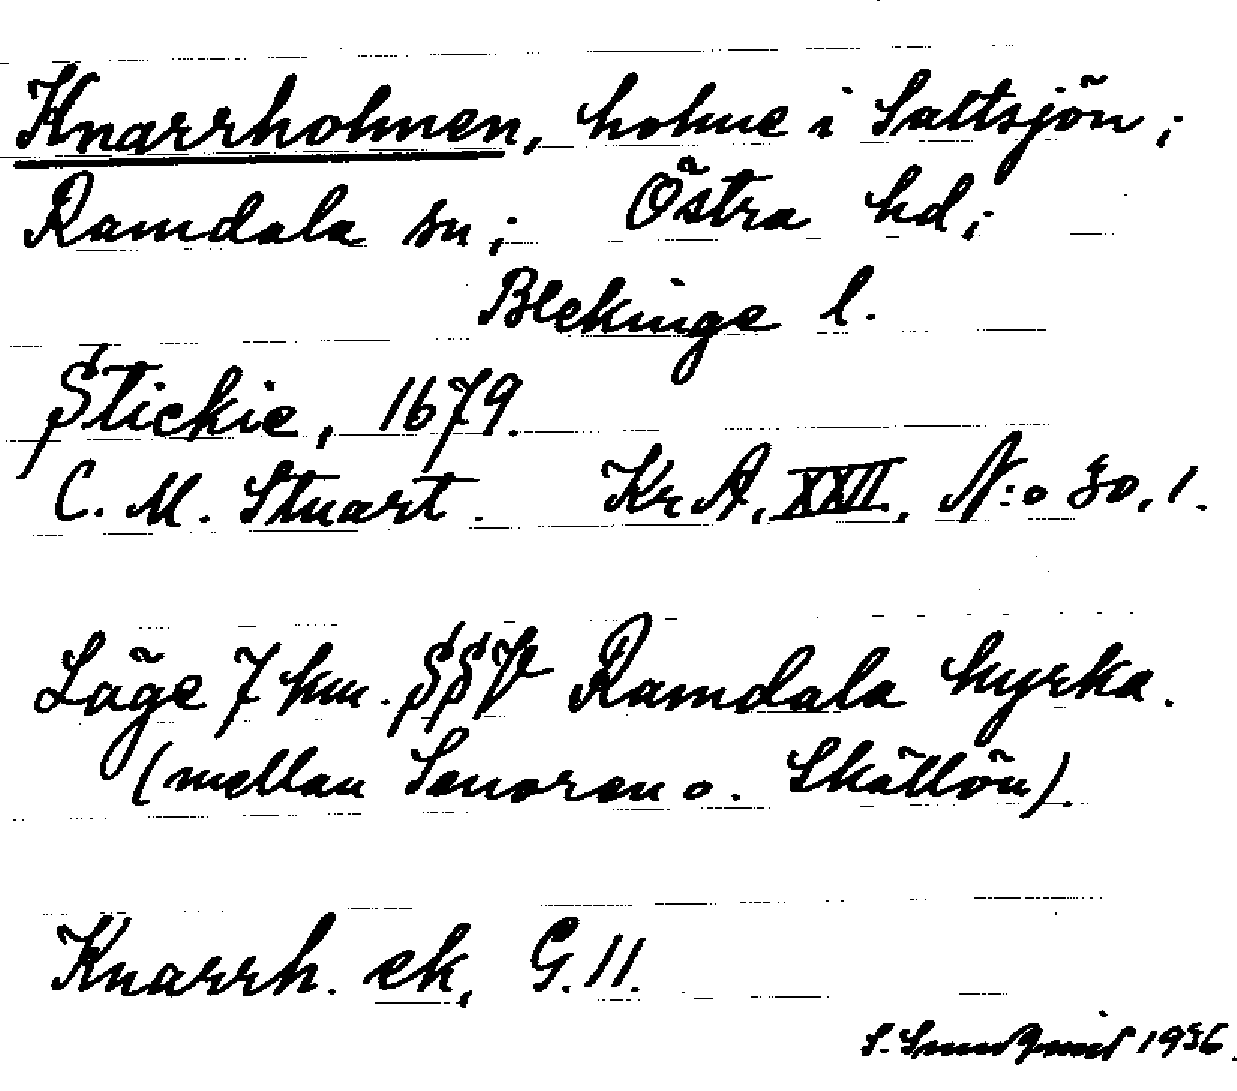 Knarrholmen, holme i Saltsjön;
Ramdala sn; Östra hd;
Blekinge l.
Stickie, 1679.
C. M. Stuart. Kr A, XXII, N:o 30, 1.
Läge 7 km. SSV Ramdala kyrka.
(mellan Senoren o. Sköllön).
Knarrh. ek, G. 11.
S. Sundqvist 1936.